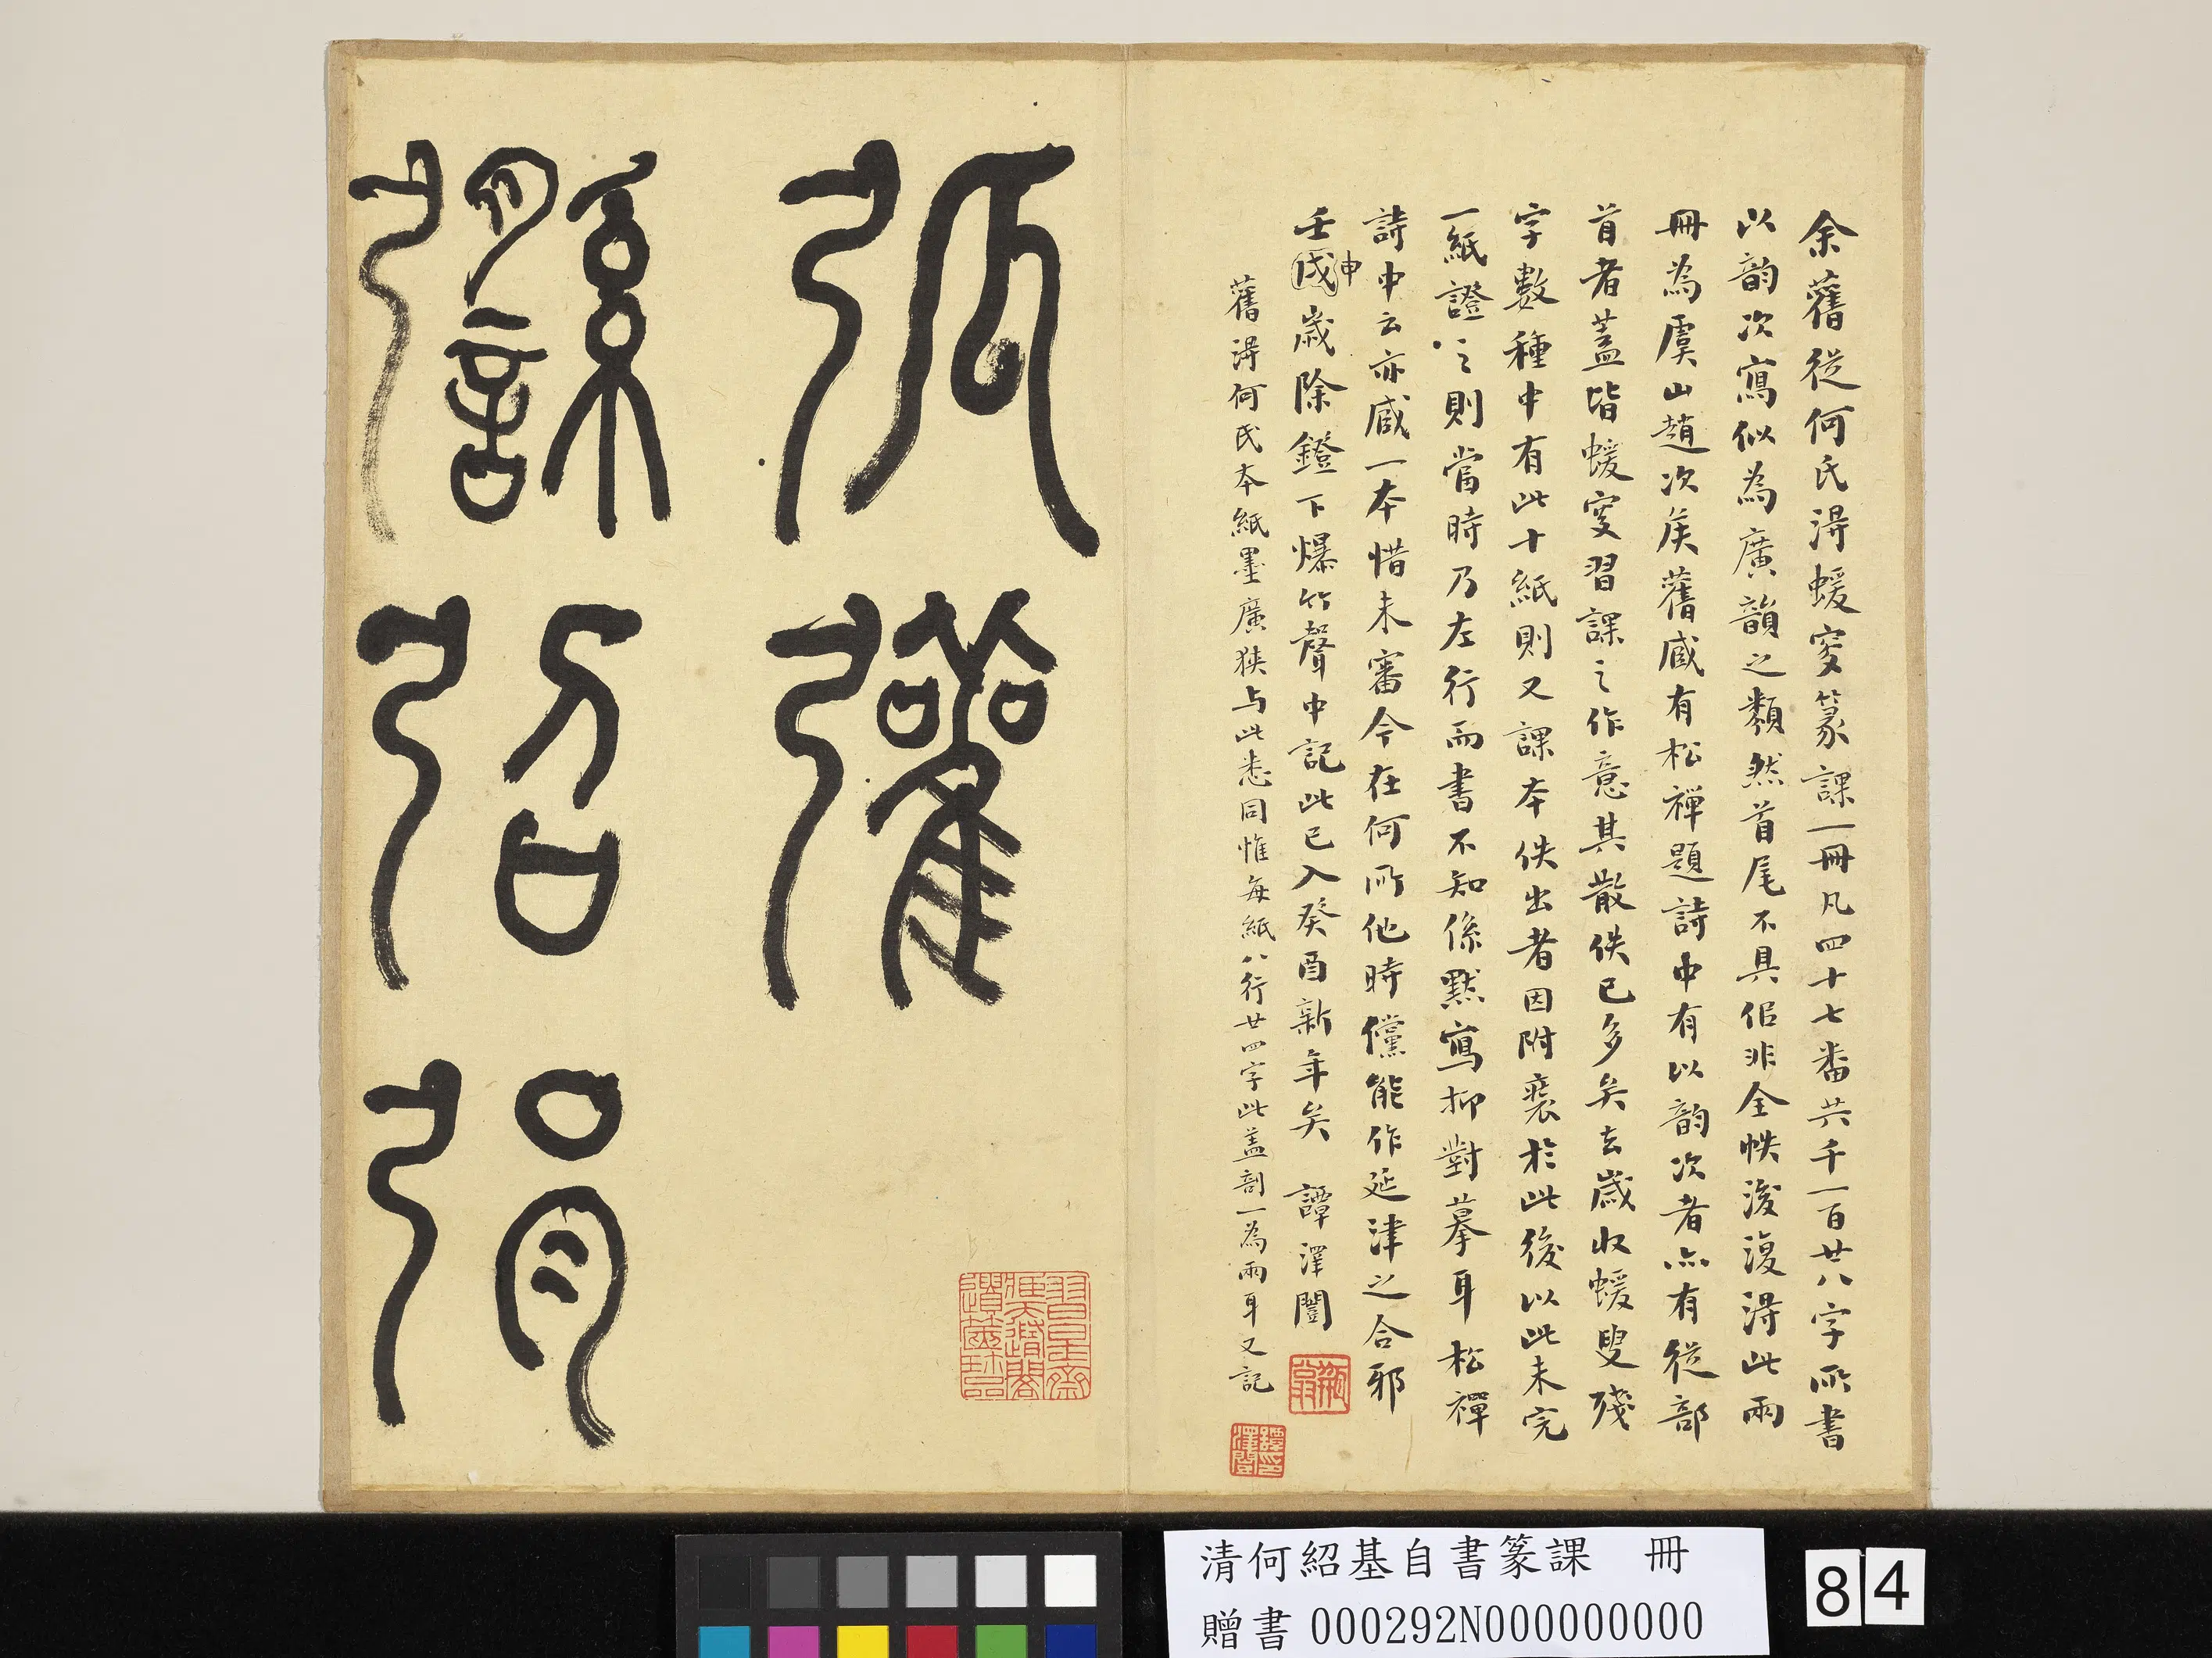 余舊從何氏得蝯叟篆課一冊凡四十七番共千一百廿八字所書
以韵次寫似為廣韻之類然首尾不具佀非全帙後復得此兩
冊為虞山趙次矦舊臧有松禪題詩中有以韵次者亦有從部
首者蓋皆蝯叟習課之作意其散佚已多矣去歲收蝯叟殘
字數種中有此十紙則又課本佚出者因附裝於此後以此未完
一紙證之則當時乃左行而書不知係默寫抑對摹耳松禪
詩中云亦臧一本惜未審今在何所他時儻能作延津之合邪
壬戌申歲除鐙下爆竹聲中記此已入癸酉新年矣 譚澤闓
舊得何氏本紙墨廣狹与此悉同惟每紙八行廿四字此蓋剖一為兩耳又記
弧 彏
弨 弲
清何紹基自書篆課 冊
贈書 000292N000000000
84